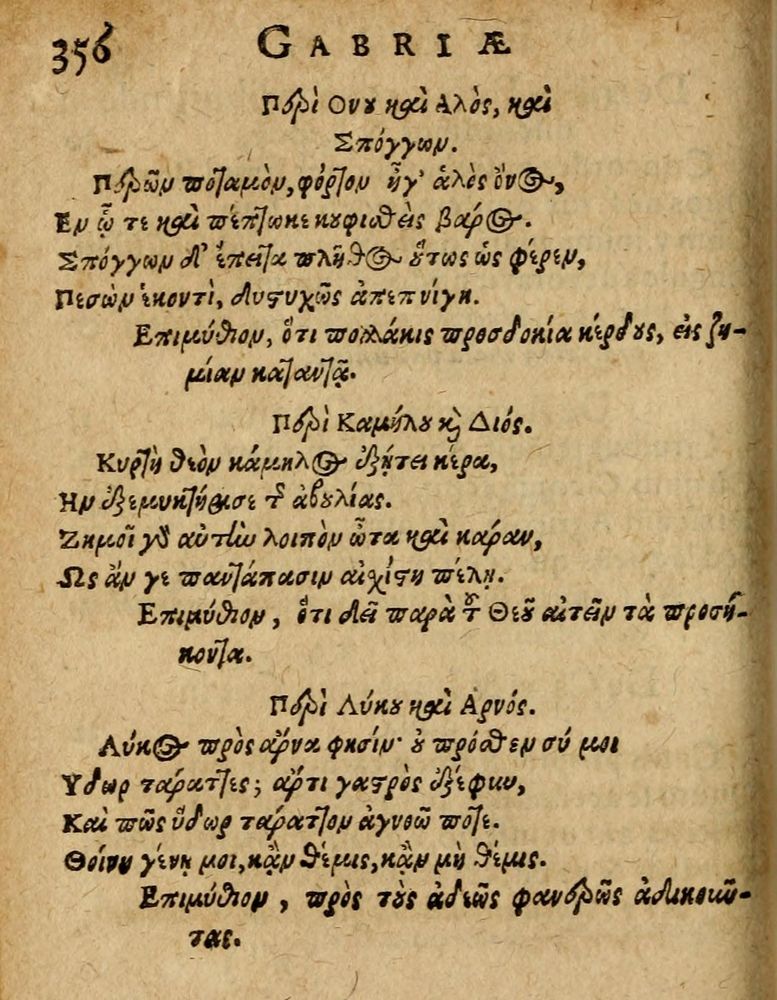 356 GABRIÆ
Περὶ Ονου καὶ Αλὸς, καὶ
Σπόγγων.
Περῶν ποταμὸν, φόρτον ἦγ' ἁλὸς ὄνος,
Εν ᾧ τε καὶ πέπτωκε κουφισθεὶς βάρος.
Σπόγγων δ' ἔπειτα πλῆθος οὕτως ὡς φέρεν,
Πεσὼν ἑκοντὶ, δυστυχῶς ἀπεπνίγη.
Επιμύθιον, ὅτι πολλάκις προσδοκία κέρδους, εἰς ζη-
μίαν καταντᾷ.
Περὶ Καμήλου καὶ Διός.
Κυρτὴ θεὸν κάμηλος ἐξῄτει κέρα,
Ην ἐξεμυκτήρισε τῆς ἀβουλίας.
Ζημοῖ γὰρ αὐτὴν λοιπὸν ὦτα καὶ κάραν,
Ως ἄν γε παντάπασιν αἰχίστη πέλῃ.
Επιμύθιον, ὅτι δεῖ παρὰ τοῦ Θεοῦ αἰτεῖν τὰ προσή-
κοντα.
Περὶ Λύκου καὶ Αρνός.
Λύκος πρὸς ἄρνα φησίν· οὐ πρόσθεν σύ μοι
Υδωρ ταράττες; ἄρτι γαστρὸς ἐξέφυν,
Καὶ πῶς ὕδωρ ταράττον ἀγνοῶ ποτε.
Θοίνη γένῃ μοι, κᾂν θέμις, κᾂν μὴ θέμις.
Επιμύθιον, πρὸς τοὺς ἀδεῶς φανερῶς ἀδικοῦν-
τας.